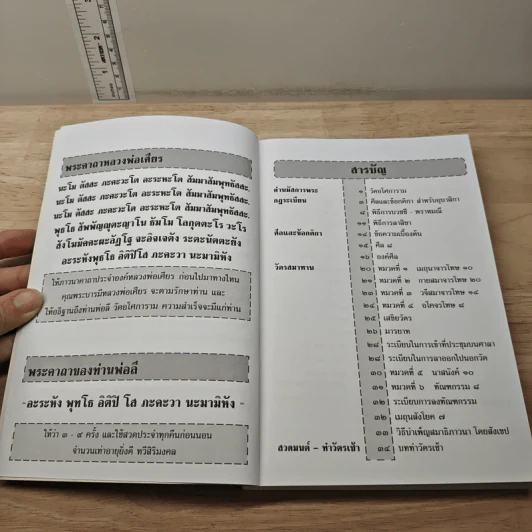 พระคาถาหลวงพ่อเศียร
นะโม ตัสสะ ภะคะวะโต อะระหะโต สัมมาสัมพุทธัสสะ.
นะโม ตัสสะ ภะคะวะโต อะระหะโต สัมมาสัมพุทธัสสะ.
นะโม ตัสสะ ภะคะวะโต อะระหะโต สัมมาสัมพุทธัสสะ.
พุทโธ สัพพัญญุตะญาโน ธัมโม โลกุตตะโร วะโร
สังโฆมัคคะผะลัฏโฐ จะอิจเจตัง ระตะนัตตะยัง
อะระหังพุทโธ อิติปิ โส ภะคะวา นะมามิหัง
ให้ภาวนาคาถาประจำองค์หลวงพ่อเศียร ก่อนไปมาทางไหน
คุณพระบารมีหลวงพ่อเศียร จะตามรักษาท่าน และ
ให้อธิฐานถึงท่านพ่อลี วัดอโศการาม ความสำเร็จจะมีแก่ท่าน
พระคาถาของท่านพ่อลี
อะระหัง พุทโธ อิติปิ โส ภะคะวา นะมามิหัง
ให้ว่า ๓ - ๙ ครั้ง และใช้สวดประจำทุกคืนก่อนนอน
จำนวนเท่าอายุยิ่งดี ทวีสิริมงคล
สารบัญ
คำนมัสการพระ ๑ วัดอโศการาม
กฎระเบียบ ๓ ศีลและข้อกติกา สำหรับอุบาสิกา
๘ พิธีการบวชชี - พราหมณี
๑๑ พิธีการลาสิกขา
ศีลและข้อกติกา ๑๔ ข้อความเบื้องต้น
๑๕ ศีล ๘
๑๖ องค์ศีล
วัตรสมาทาน ๒๐ หมวดที่ ๑ เมถุนาจารโทษ ๑๐
๒๑ หมวดที่ ๒ กายสมาจารโทษ ๒๐
๒๓ หมวดที่ ๓ วจีสมาจารโทษ ๑๔
๒๔ หมวดที่ ๔ อโคจรโทษ ๘
๒๕ เสขิยวัตร
๒๖ มารยาท
๒๘ ระเบียบในการเข้าที่ประชุมบนศาลา
๒๘ ระเบียบในการลาออกไปนอกวัด
๓๐ หมวดที่ ๕ นาสนังค์ ๑๐
๓๑ หมวดที่ ๖ ทัณฑกรรม ๘
๓๒ ระเบียบการลงทัณฑกรรม
๓๒ เมถุนสังโยค ๗
๓๓ วิธีบำเพ็ญสมาธิภาวนา โดยสังเขป
สวดมนต์ - ทำวัตรเช้า ๓๔ บททำวัตรเช้า